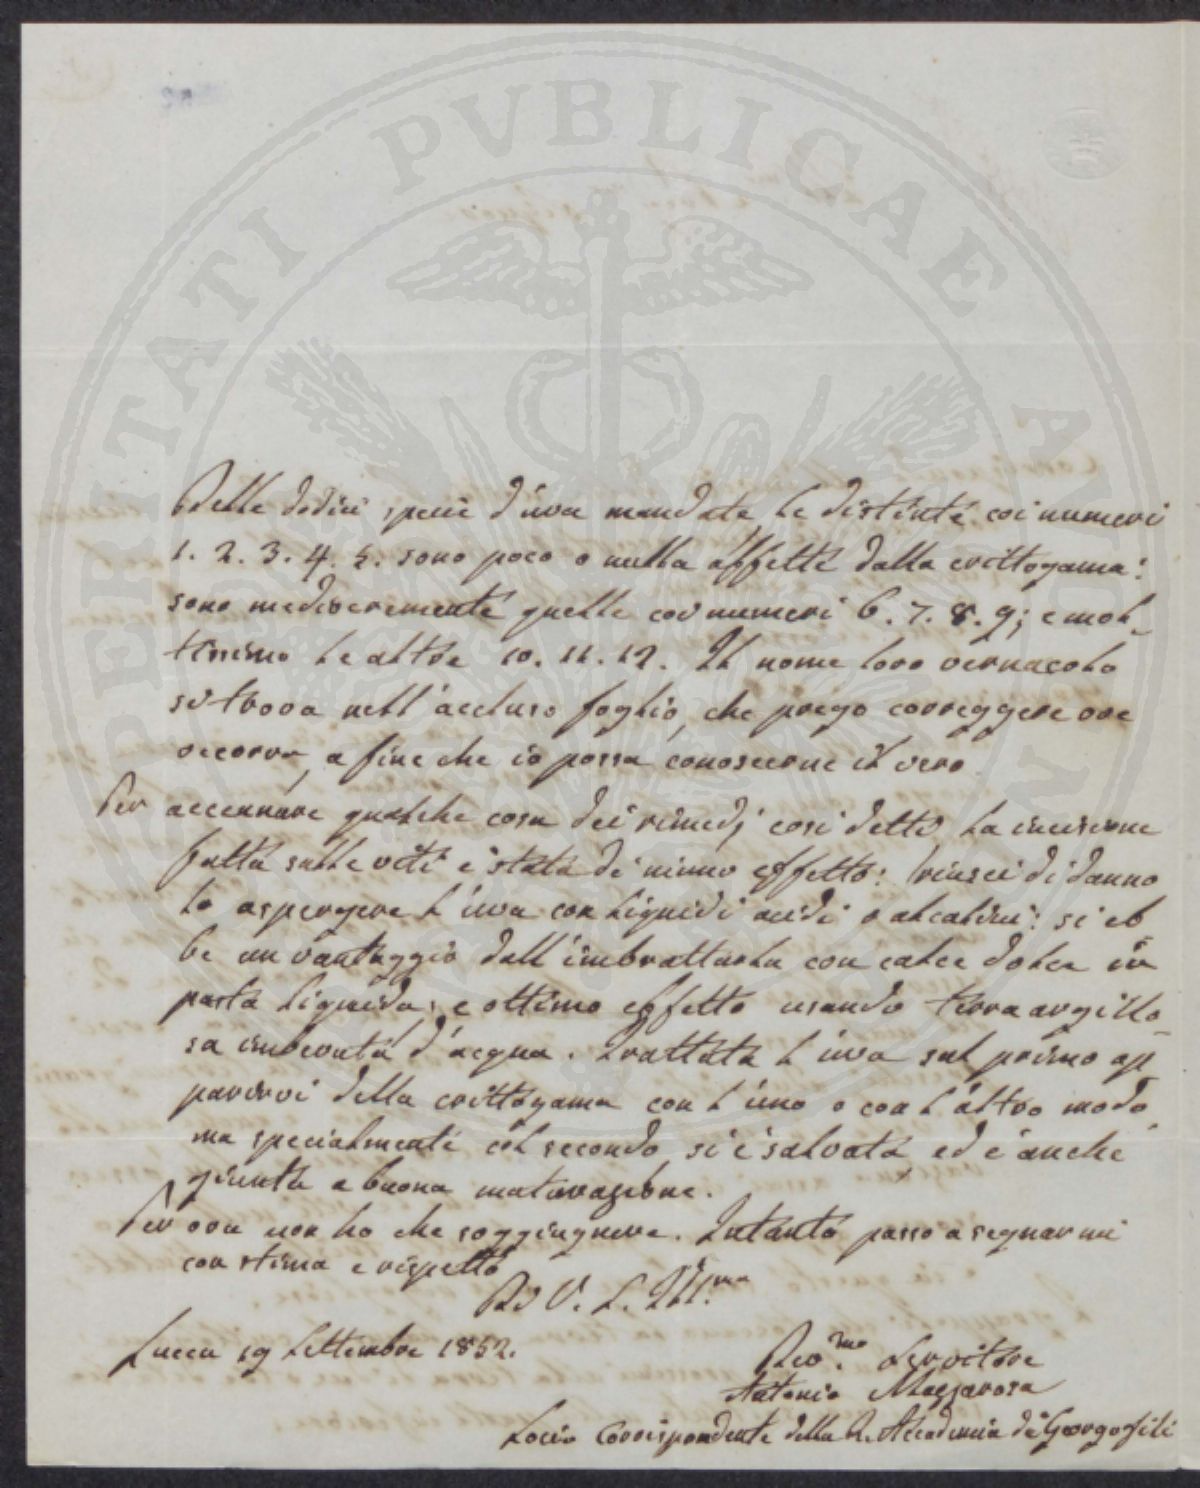 PROSPERITATI PVBLICAE AVG
Delle dodici specie d'uva mandate le distinte coi numeri
1. 2. 3. 4. 5. sono poco o nulla affette dalla crittogama:
sono mediocremente quelle coi numeri 6. 7. 8. 9; e mol-
tissimo le altre 10. 11. 12. Il nome loro vernacolo
si trova nell'accluso foglio, che prego correggere ove
occorra, a fine che io possa conoscerne il vero.
Per accennare qualche cosa dei rimedj così detti, la incisione
fatta sulle viti è stata di niuno effetto: riuscì di danno
lo aspergere l'uva con liquidi acidi o alcalini: si eb-
be un vantaggio dall'imbrattarla con calce dolce in
pasta liquida; e ottimo effetto usando terra argillo-
sa imbevuta d'acqua. Trattata l'uva sul primo ap
parirvi della crittogama con l'uno o con l'altro modo,
ma specialmente col secondo, si è salvata, ed è anche
giunta a buona maturazione.
Per ora non ho che soggiugnere. Intanto passo a segnarmi
con stima e rispetto
Di V. S. Ill.ma
Lucca 19 Settembre 1852.
Dev.mo Servitore
Antonio Mazzarosa
Socio Corrispondente della R. Accademia de' Georgofili